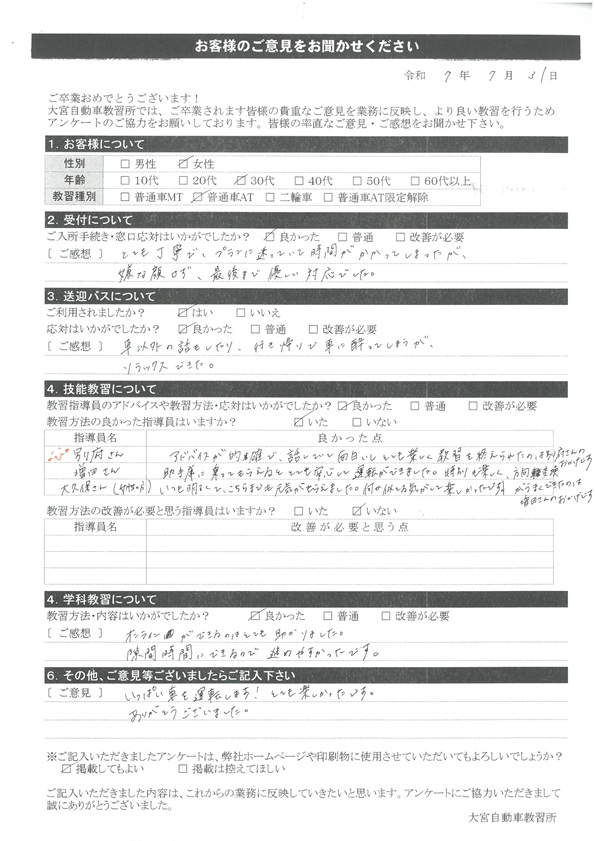 お客様のご意見をお聞かせください
令和 7 年 7 月 31 日
ご卒業おめでとうございます！
大宮自動車教習所では、ご卒業されます皆様の貴重なご意見を業務に反映し、より良い教習を行うため
アンケートのご協力をお願いしております。皆様の率直なご意見・ご感想をお聞かせ下さい。
1. お客様について
性別 □ 男性 ☑ 女性
年齢 □ 10代 □ 20代 ☑ 30代 □ 40代 □ 50代 □ 60代以上
教習種別 □ 普通車MT ☑ 普通車AT □ 二輪車 □ 普通車AT限定解除
2. 受付について
ご入所手続き・窓口応対はいかがでしたか？ ☑ 良かった □ 普通 □ 改善が必要
［ ご感想 ］ とても丁寧で、プランに迷っていて時間がかかってしまったが、
嫌な顔せず、最後まで優しい対応でした。
3. 送迎バスについて
ご利用されましたか？ ☑ はい □ いいえ
応対はいかがでしたか？ ☑ 良かった □ 普通 □ 改善が必要
［ ご感想 ］ 車以外の話もしたり、行き帰りで車に酔ってしまうが、
リラックスできた。
4. 技能教習について
教習指導員のアドバイスや教習方法・応対はいかがでしたか？ ☑ 良かった □ 普通 □ 改善が必要
教習方法の良かった指導員はいますか？ ☑ いた □ いない
指導員名 良かった点
別府さん アドバイスが的確で、話していて面白いしとても楽しく教習を終えられたのは別府さんのおかげです
増田さん 助手席に乗ってもらえるととても安心して運転ができました。時別も楽しく、方向転換がうまくできたのは増田さんのおかげです
大久保さん いつも明るくて、こちらまでも元気がもらえました。 楽しかったです
教習方法の改善が必要と思う指導員はいますか？ □ いた ☑ いない
指導員名 改善が必要と思う点
4. 学科教習について
教習方法・内容はいかがでしたか？ ☑ 良かった □ 普通 □ 改善が必要
［ ご感想 ］ オンラインができるのはとても助かりました。
隙間時間にできるので進めやすかったです。
6. その他、ご意見等ございましたらご記入下さい
［ ご意見 ］ いっぱい車を運転します！とても楽しかったです。
ありがとうございました。
※ご記入いただきましたアンケートは、弊社ホームページや印刷物に使用させていただいてもよろしいでしょうか？
☑ 掲載してもよい □ 掲載は控えてほしい
ご記入いただきました内容は、これからの業務に反映していきたいと思います。アンケートにご協力いただきまして
誠にありがとうございました。
大宮自動車教習所